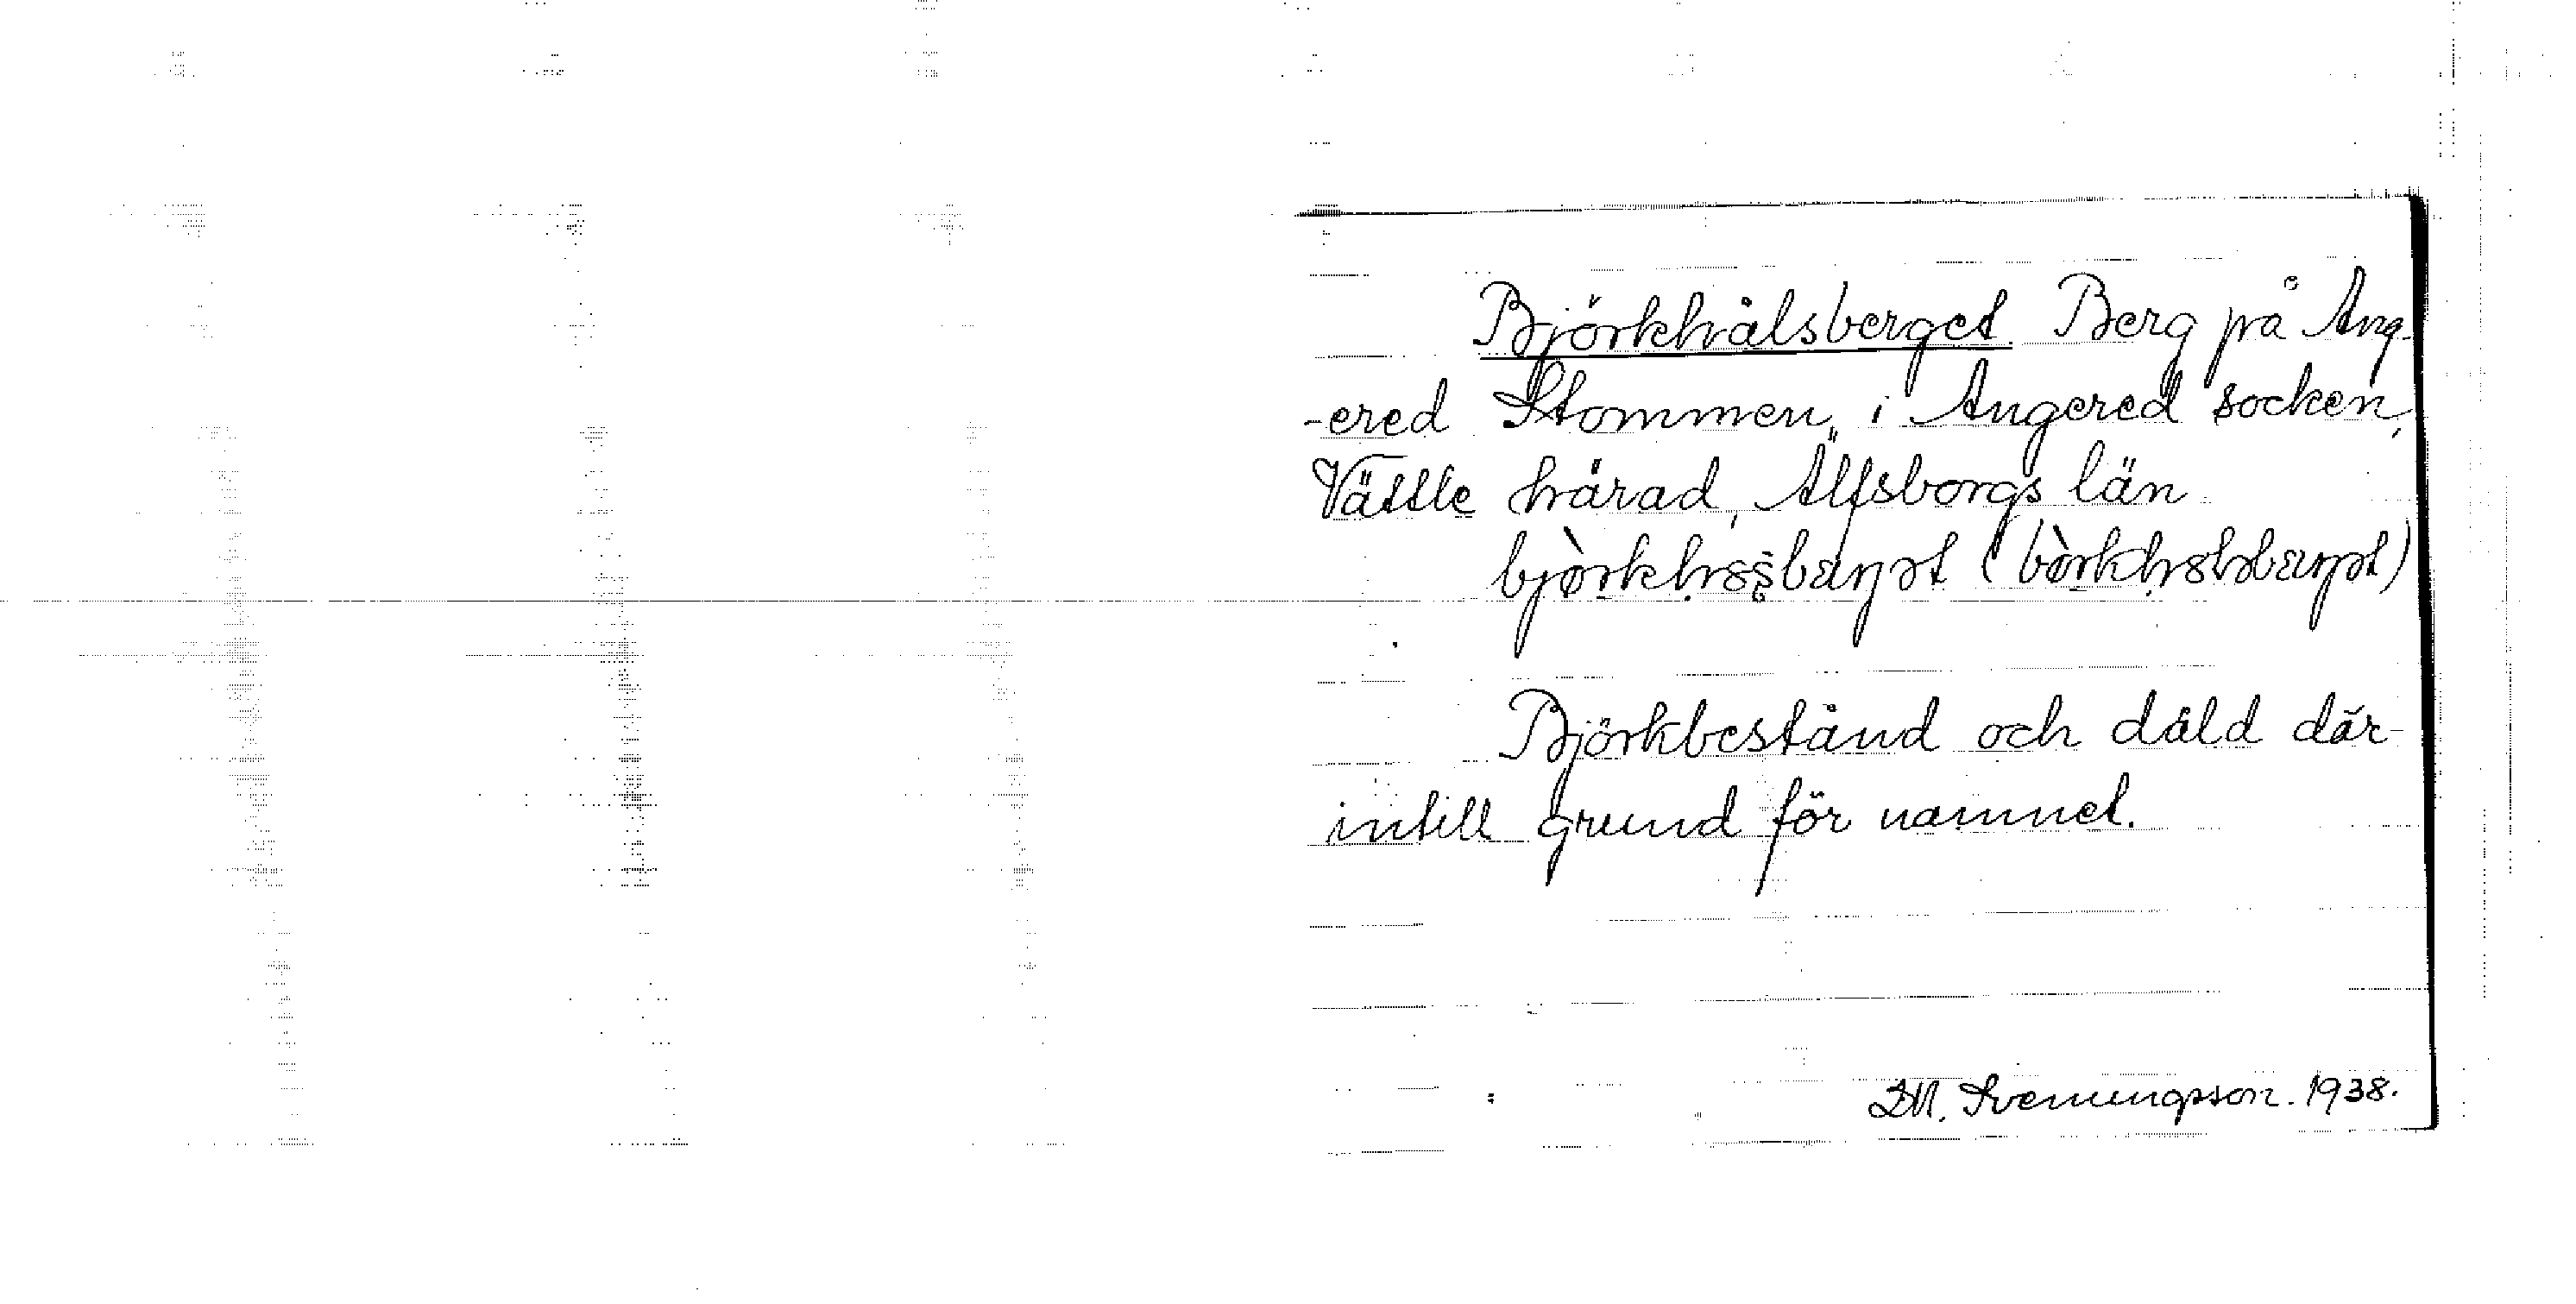 Björkhålsberget. Berg på Ang-
-ered Stommen i Angered socken,
Vättle härad, Älfsborgs län.
Björkbestånd och dåld där-
intill grund för namnet.
Svenungsson. 1938.